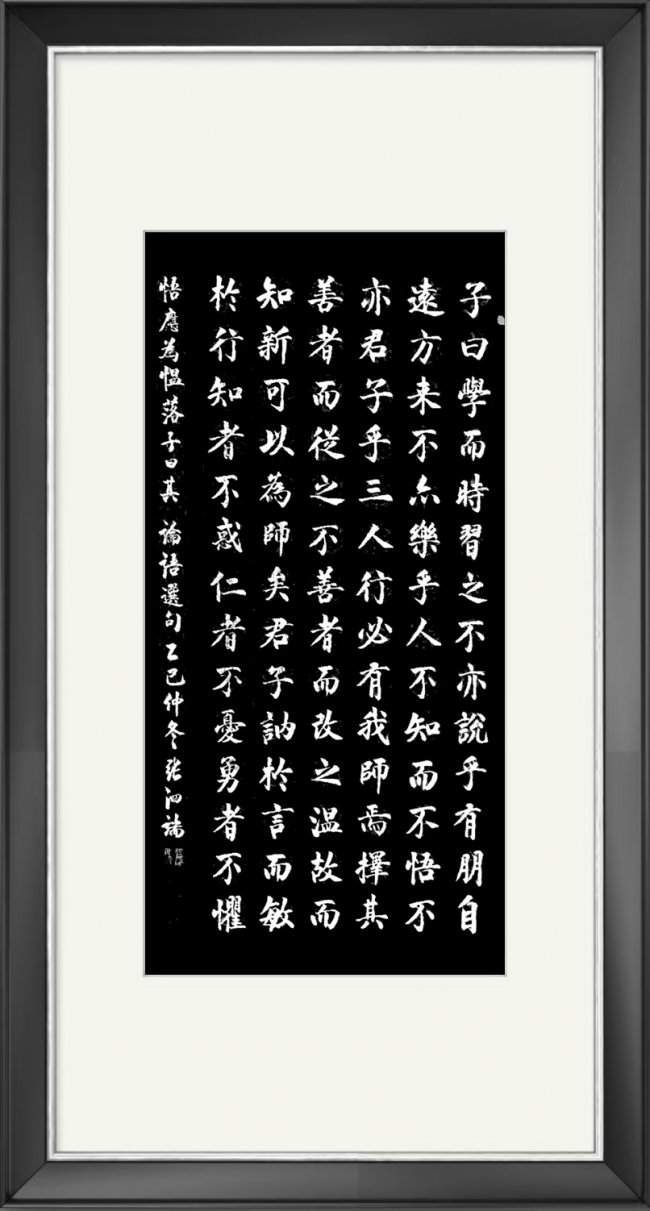 子曰學而時習之不亦說乎有朋自
遠方来不亦樂乎人不知而不悟不
亦君子乎三人行必有我師焉擇其
善者而従之不善者而改之温故而
知新可以為師矣君子訥於言而敏
於行知者不惑仁者不憂勇者不懼
悟應為愠落子曰其 論語選句乙巳仲冬張泗